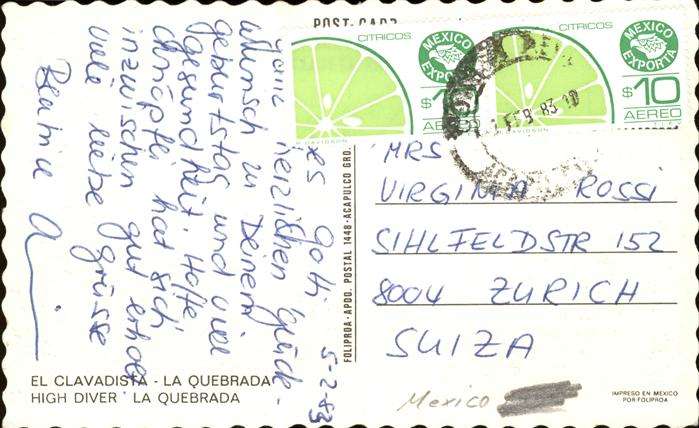 POST CARD
CITRICOS
MEXICO
EXPORTA
$10
AEREO
CITRICOS
MEXICO
EXPORTA
$10
AEREO
FEB 83
5-2-83
Gotti
herzlichen Glück-
wunsch zu Deinem
Geburtstag und viel
Gesundheit. Hoffe
chnöpfli hat sich
inzwischen gut erholt
viele liebe Grüsse
MRS
VIRGINIA ROSSI
SIHLFELDSTR 152
8004 ZURICH
SUIZA
FOLIPROA · APDO. POSTAL 1448 · ACAPULCO GRO.
EL CLAVADISTA · LA QUEBRADA
HIGH DIVER · LA QUEBRADA
Mexico
IMPRESO EN MEXICO
POR FOLIPROA